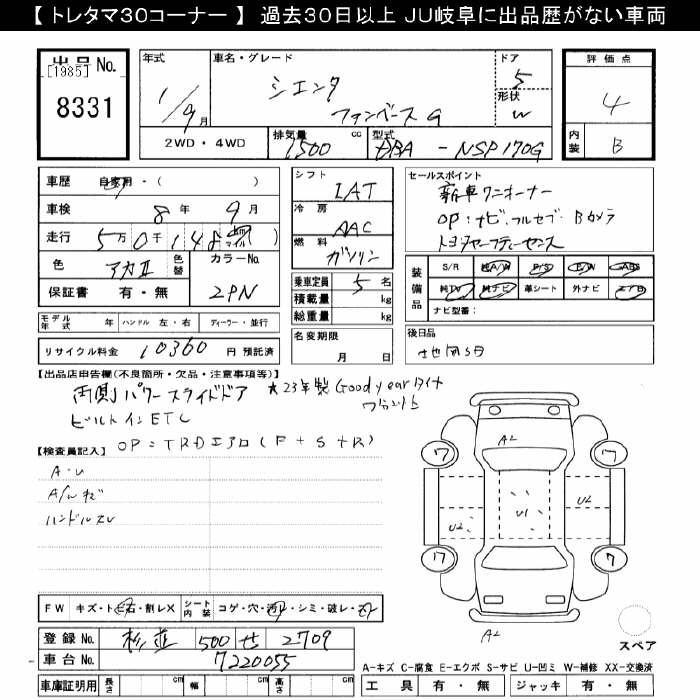 【 トレタマ30コーナー 】 過去30日以上 JU岐阜に出品歴がない車両
出品 No.
[1985]
8331
年式
1/9月
車名・グレード
シエンタ
ファンベースG
ドア
5
形状
W
評価点
4
内装
B
2WD・4WD
排気量
1500 cc
型式
DBA - NSP170G
車歴 自家用・( )
車検 8年 9月
走行 5万0千148 km マイル
色 アカII
色替
カラーNo.
2PN
保証書 有・無
シフト
IAT
冷房
AAC
燃料
ガソリン
乗車定員 5名
積載量 kg
総重量 kg
名変期限
月 日
セールスポイント
新車ワンオーナー
OP:ナビ、フルセグ・Bカメラ
トヨタセーフティーセンス
装備品
S/R 純A/W P/S P/W ABS
純TV 純ナビ 革シート 外ナビ エアB
ナビ型番:
後日品
モデル年式 年 ハンドル 左・右 ディーラー・並行
リサイクル料金 10360 円 預託済
【出品店申告欄(不良箇所・欠品・注意事項等)】
両側パワースライドドア ★23年製Goodyearタイヤ
ビルトインETC
OP:TRDエアロ(F+S+R)
【検査員記入】
A・U
ハンドルスレ
A2
ワ
ワ
U2
U1
U2
ワ
ワ
A2
FW キズ・トビ石・割レX
シート内装 コゲ・穴・汚レ・シミ・破レ・スレ
登録 No. 杉並 500 せ 2709
車台 No. 7220055
車庫証明用 長さ cm 幅 cm 高さ cm
スペア
A-キズ C-腐食 E-エクボ S-サビ U-凹ミ W-補修 XX-交換済
工具 有・無 ジャッキ 有・無